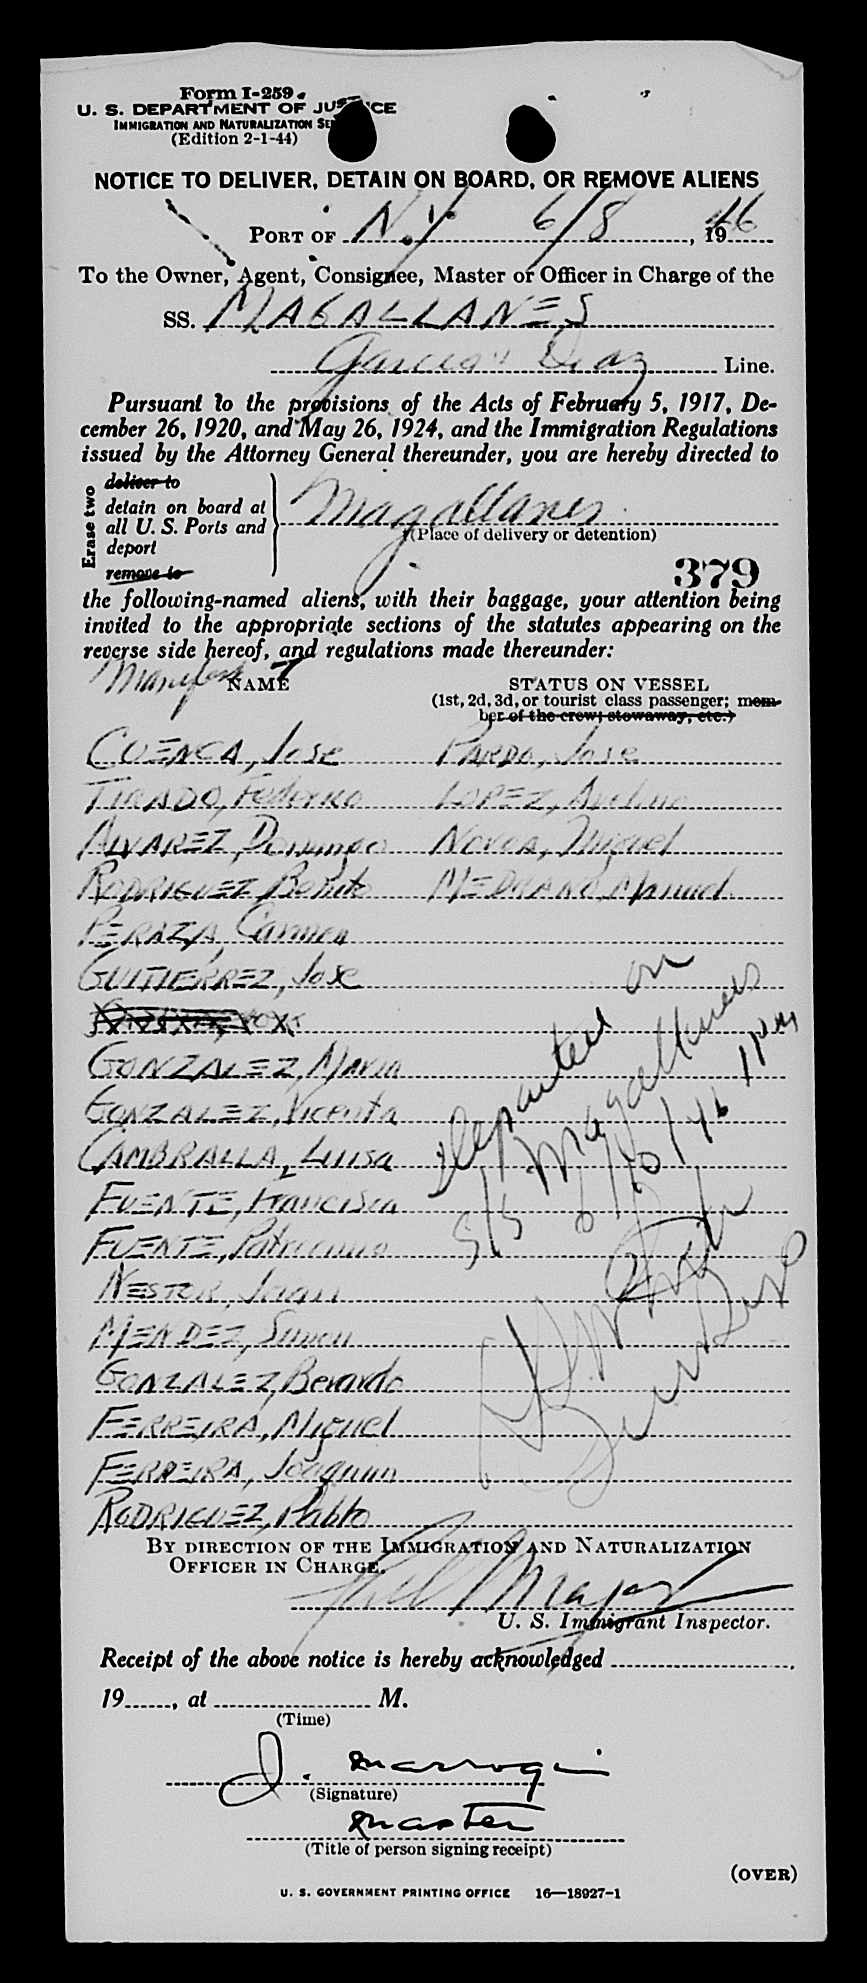 Form I-259
U. S. DEPARTMENT OF JUSTICE
IMMIGRATION AND NATURALIZATION
(Edition 2-1-44)
NOTICE TO DELIVER, DETAIN ON BOARD, OR REMOVE ALIENS
PORT OF N.Y. 6/8, 1946
To the Owner, Agent, Consignee, Master or Officer in Charge of the
SS. MAGALLANES
Garcia & Diaz Line.
Pursuant to the provisions of the Acts of February 5, 1917, De-
cember 26, 1920, and May 26, 1924, and the Immigration Regulations
issued by the Attorney General thereunder, you are hereby directed to
Erase two
deliver to
detain on board at
all U. S. Ports and
deport
remove to
Magallanes
(Place of delivery or detention)
379
the following-named aliens, with their baggage, your attention being
invited to the appropriate sections of the statutes appearing on the
reverse side hereof, and regulations made thereunder:
Manifest
NAME STATUS ON VESSEL
(1st, 2d, 3d, or tourist class passenger; mem-
ber of the crew; stowaway, etc.)
CUENCA, Jose PARDO, Jose
TIRADO, Federico LOPEZ, Avelino
ALVAREZ, Domingo NOVOA, Miguel
RODRIGUEZ, Benito MEDRANO, Manuel
PERAZA, Carmen
GUITIERREZ, Jose
GONZALEZ, Maria
GONZALEZ, Vicenta
CAMBRALLA, Luisa
FUENTE, Francisca
FUENTE, Patrocinio
NESTOR, Joan
MENDEZ, Simon
GONZALEZ, Berardo
FERREIRA, Miguel
FERREIRA, Joaquin
RODRIGUEZ, Pablo
departed on
S/S Magallanes
6/10/46 1PM
BY DIRECTION OF THE IMMIGRATION AND NATURALIZATION
OFFICER IN CHARGE.
Major
U. S. Immigrant Inspector.
Receipt of the above notice is hereby acknowledged
19, at M.
(Time)
J. Marrogi
(Signature)
Master
(Title of person signing receipt)
(OVER)
U. S. GOVERNMENT PRINTING OFFICE 16—18927-1